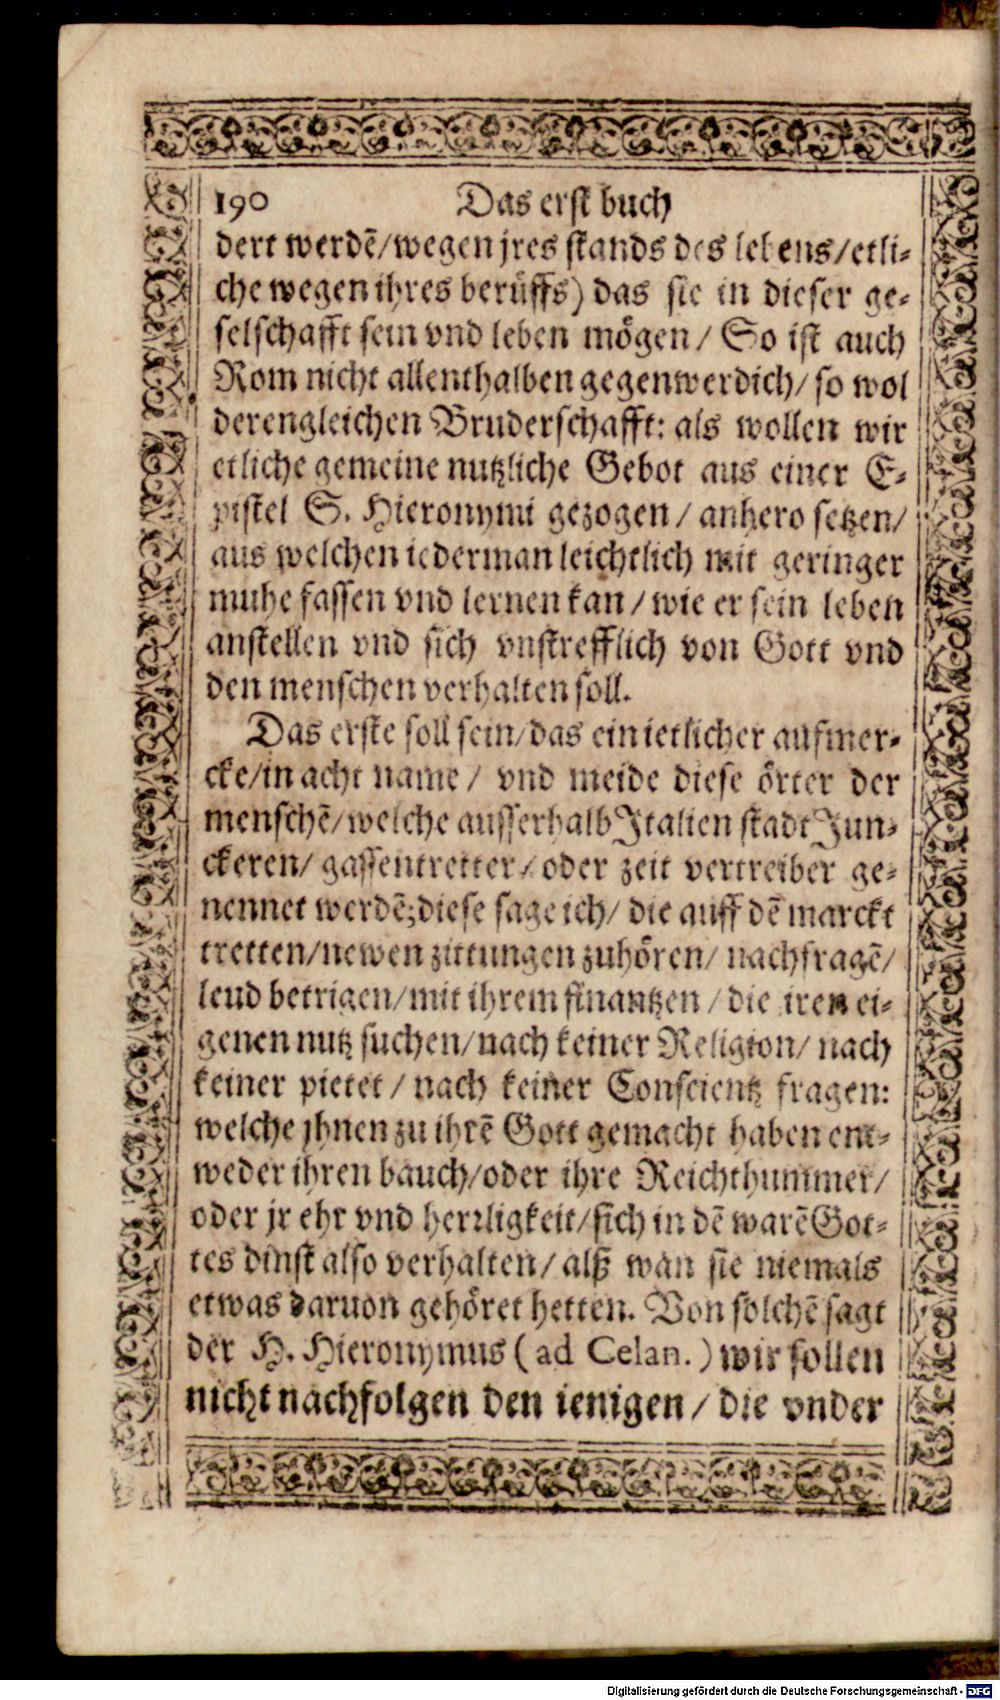 190 Das erst buch
dert werdē/wegen jres stands des lebens/etli-
che wegen ihres berüffs) das sie in dieser ge-
selschafft sein vnd leben mögen/ So ist auch
Rom nicht allenthalben gegenwerdich/ so wol
derengleichen Bruderschafft: als wollen wir
etliche gemeine nutzliche Gebot aus einer E-
pistel S. Hieronymi gezogen / anhero setzen/
aus welchen iederman leichtlich mit geringer
muhe fassen vnd lernen kan / wie er sein leben
anstellen vnd sich vnstrefflich von Gott vnd
den menschen verhalten soll.
Das erste soll sein/das ein ietlicher aufmer-
cke/in acht name / vnd meide diese örter der
menschē/welche ausserhalb Italien stadt Jun-
ckeren/ gassentretter/ oder zeit vertreiber ge-
nennet werdē;diese sage ich/ die auff dē marckt
tretten/newen zittungen zuhören/ nachfragē/
leud betrigen/mit ihrem finantzen / die iren ei-
genen nutz suchen/nach keiner Religion/ nach
keiner pietet / nach keiner Conscientz fragen:
welche jhnen zu ihrē Gott gemacht haben ent-
weder ihren bauch/oder ihre Reichthummer/
oder jr ehr vnd herrligkeit/sich in dē warē Got-
tes dinst also verhalten/ alß wan sie niemals
etwas daruon gehöret hetten. Von solchē sagt
der H. Hieronymus ( ad Celan. ) wir sollen
nicht nachfolgen den ienigen / die vnder
Digitalisierung gefördert durch die Deutsche Forschungsgemeinschaft - DFG